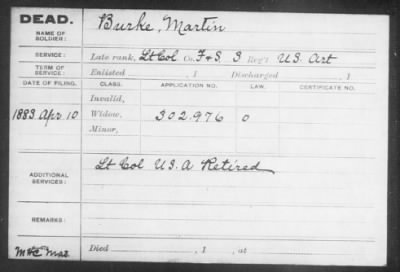 DEAD. Burke, Martin
NAME OF
SOLDIER:
SERVICE: Late rank, Lt Col Co. F & S, 3 Reg't U.S. Art
TERM OF
SERVICE: Enlisted , 1 Discharged , 1
DATE OF FILING. CLASS. APPLICATION NO. LAW. CERTIFICATE NO.
Invalid,
1883 Apr. 10 Widow, 302.976 O
Minor,
ADDITIONAL
SERVICES: Lt Col U.S.A Retired
REMARKS:
Died , 1 , at